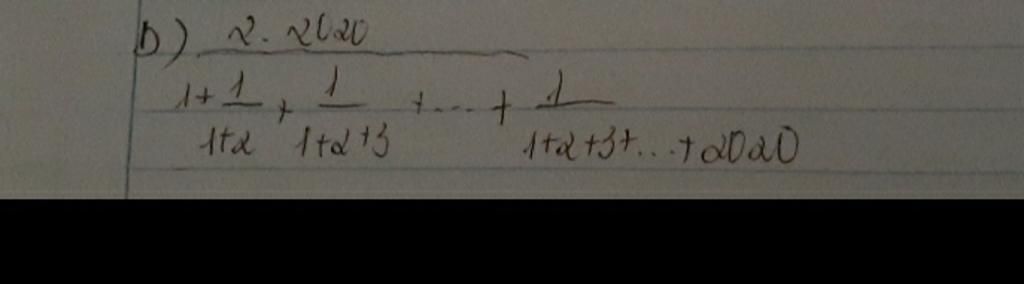 b) 2. 2020
1+ 1 + 1 +...+ 1
1+2 1+2+3 1+2+3+...+2020